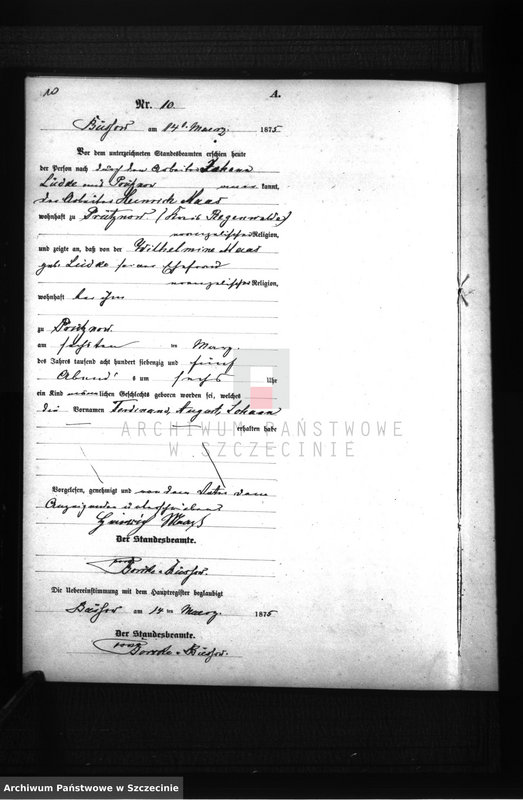 10
A.
Nr. 10.
Büssow am 14t. Maerz. 1875
Vor dem unterzeichneten Standesbeamten erschien heute
der Person nach durch den Arbeiter Johann
Lüdke aus Prütznow kannt,
der Arbeiter Heinrich Maas
wohnhaft zu Prütznow (Kreis Regenwalde)
evangelischer Religion,
und zeigte an, daß von der Wilhelmine Maas
geb. Lüdke seiner Ehefrau
evangelischer Religion,
wohnhaft bei ihm
zu Prütznow
am sechsten ten Maerz.
des Jahres tausend acht hundert siebenzig und fünf
Abends um sechs Uhr
ein Kind männlichen Geschlechts geboren worden sei, welches
die Vornamen Ferdinand, August, Johann
erhalten habe
Vorgelesen, genehmigt und von dem
Anzeigenden unterschrieben
Heinrich Maaß
Der Standesbeamte.
von Borcke-Büssow.
Die Uebereinstimmung mit dem Hauptregister beglaubigt
Büssow am 14 ten Maerz. 1875
Der Standesbeamte.
von Borcke-Büssow.
ARCHIWUM PAŃSTWOWE
W SZCZECINIE
Archiwum Państwowe w Szczecinie